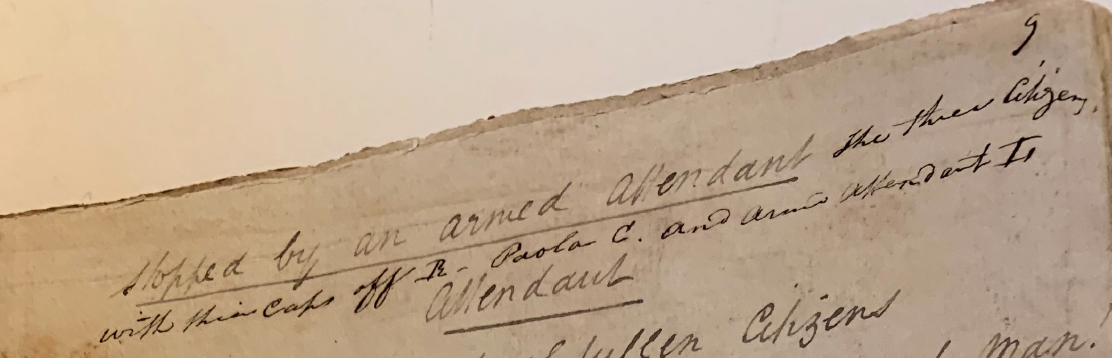 9
Stopped by an armed Attendant The three Citizens,
with their Caps off R. Paolo C. and armd Attendant L
Attendant
sullen Citizens
man!